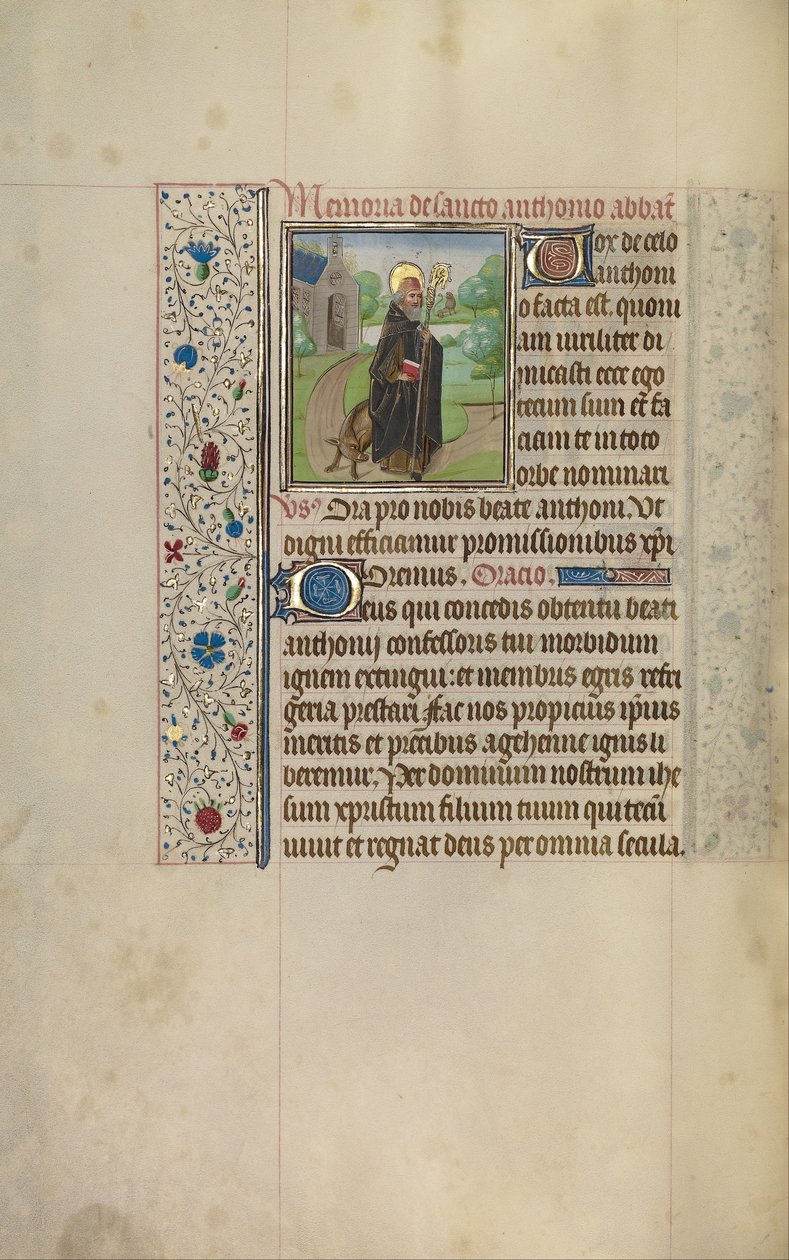 Memoria de sancto anthonio abbat̄
Vox de celo
anthoni
o facta est. quoni
am uiriliter di
micasti ecce ego
tecum sum et̄ fa
ciam te in toto
orbe nominari
Vsꝰ Ora pro nobis beate anthoni. Vt
digni efficiamur promissionibus xp̄i
Oremus. Oracio.
Deus qui concedis obtentu beati
anthonij confessoris tui morbidum
ignem extingui: et membris egris refri
geria prestari fac nos propicius ip̄ius
meritis et precibus a gehenne ignis li
beremur. Per dominum nostrum ihe
sum xpristum filium tuum qui tecū
uiuit et regnat deus per omnia secula.